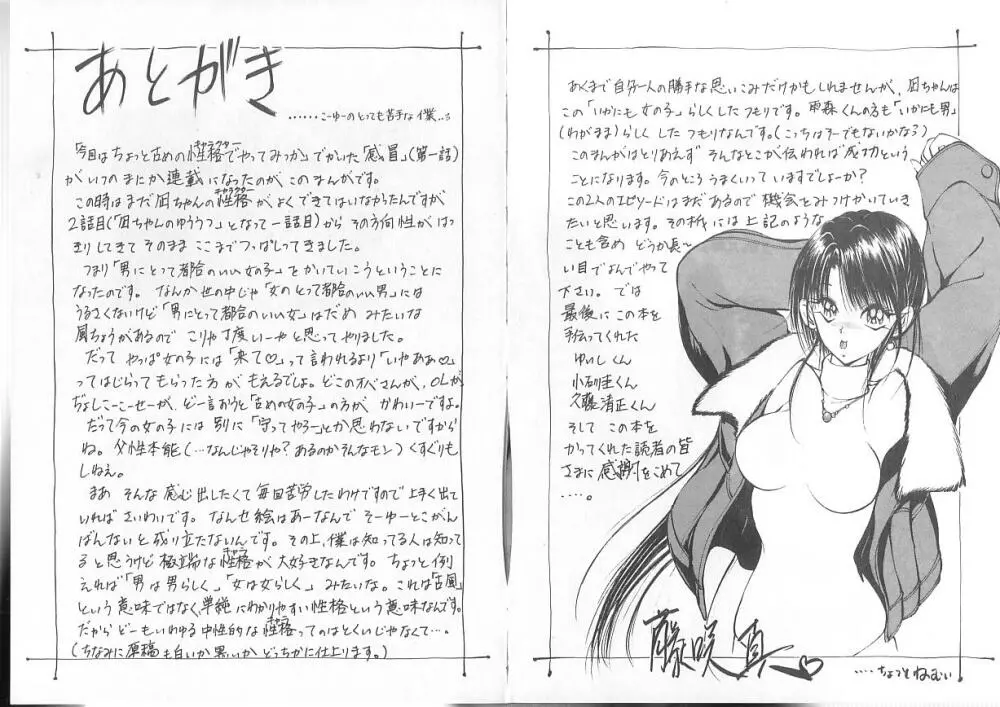 あとがき
……こーゆーのとっても苦手な僕…
「今回はちょっと古めの性格でやってみっか」でかいた「感冒」(第一話)
がいつのまにか連載になったのが このまんがです。
この時はまだ 凪ちゃんの性格が よくできてはいなかったんですが
2話目(「凪ちゃんのゆううつ」となって一話目)から その方向性がはっ
きりしてきて そのまま ここまでつっぱしってきました。
つまり「男にとって都合のいい女の子」をかいていこうということに
なったのです。 なんか世の中じゃ「女のとって都合のいい男」には
うるさくないけど「男にとって都合のいい女」はだめ みたいな
風ちょうがあるので こりゃ丁度いーや と思ってやりました。
だって やっぱ女の子には「来て♡」って言われるより「いやああ♡」
ってはじらってもらった方が もえるでしょ。どこのオバさんが、OLが
ぢょしこーこーせーが、どー言おうと「古めの女の子」の方が かわいーですよ。
だって今の女の子には 別に「守ってやろー」とか思わないですから
ね。父性本能(…なんじゃそりゃ?あるのかそんなモン)くすぐりも
しねぇ。
まあ そんな 感じ出したくて 毎回苦労したわけですので 上手く出て
いれば さいわいです。 なんせ絵はあーなんで そーゆーとこがん
ばんないと 成り立たないんです。その上、僕は知ってる人は知って
ると思うけど 極端な性格が 大好きなんです。ちょっと例
えれば「男は男らしく」「女は女らしく」みたいな。これは「古風」
という意味ではなく、単純にわかりやすい性格という意味なんです。
だから どーもいわゆる中性的な性格ってのはとくいじゃなくて…。
(ちなみに原稿も白いか黒いか どっちかに仕上ります。)
あくまで自分一人の勝手な思いこみだけかもしれませんが、凪ちゃんは
この「いかにも女の子」らしくしたつもりです。雨森くんの方も「いかにも男」
(わがまま)らしく したつもりなんです。(こっちはそーでもないかな?)
このまんがはとりあえず そんなとこが伝われば成功という
ことになります。今のところ うまくいって いますでしょーか?
この2人のエピソードはまだあるので 機会をみつけかいていき
たいと思います。その折には 上記のような
ことも含め どうか長〜
い目でよんでやって
下さい。では
最後に この本を
手伝ってくれた
ゆいしくん
小砂圭くん
久藤清正くん
そして この本を
かってくれた読者の皆
さまに 感謝をこめて
….。
藤咲真♡
….ちょっとねむい